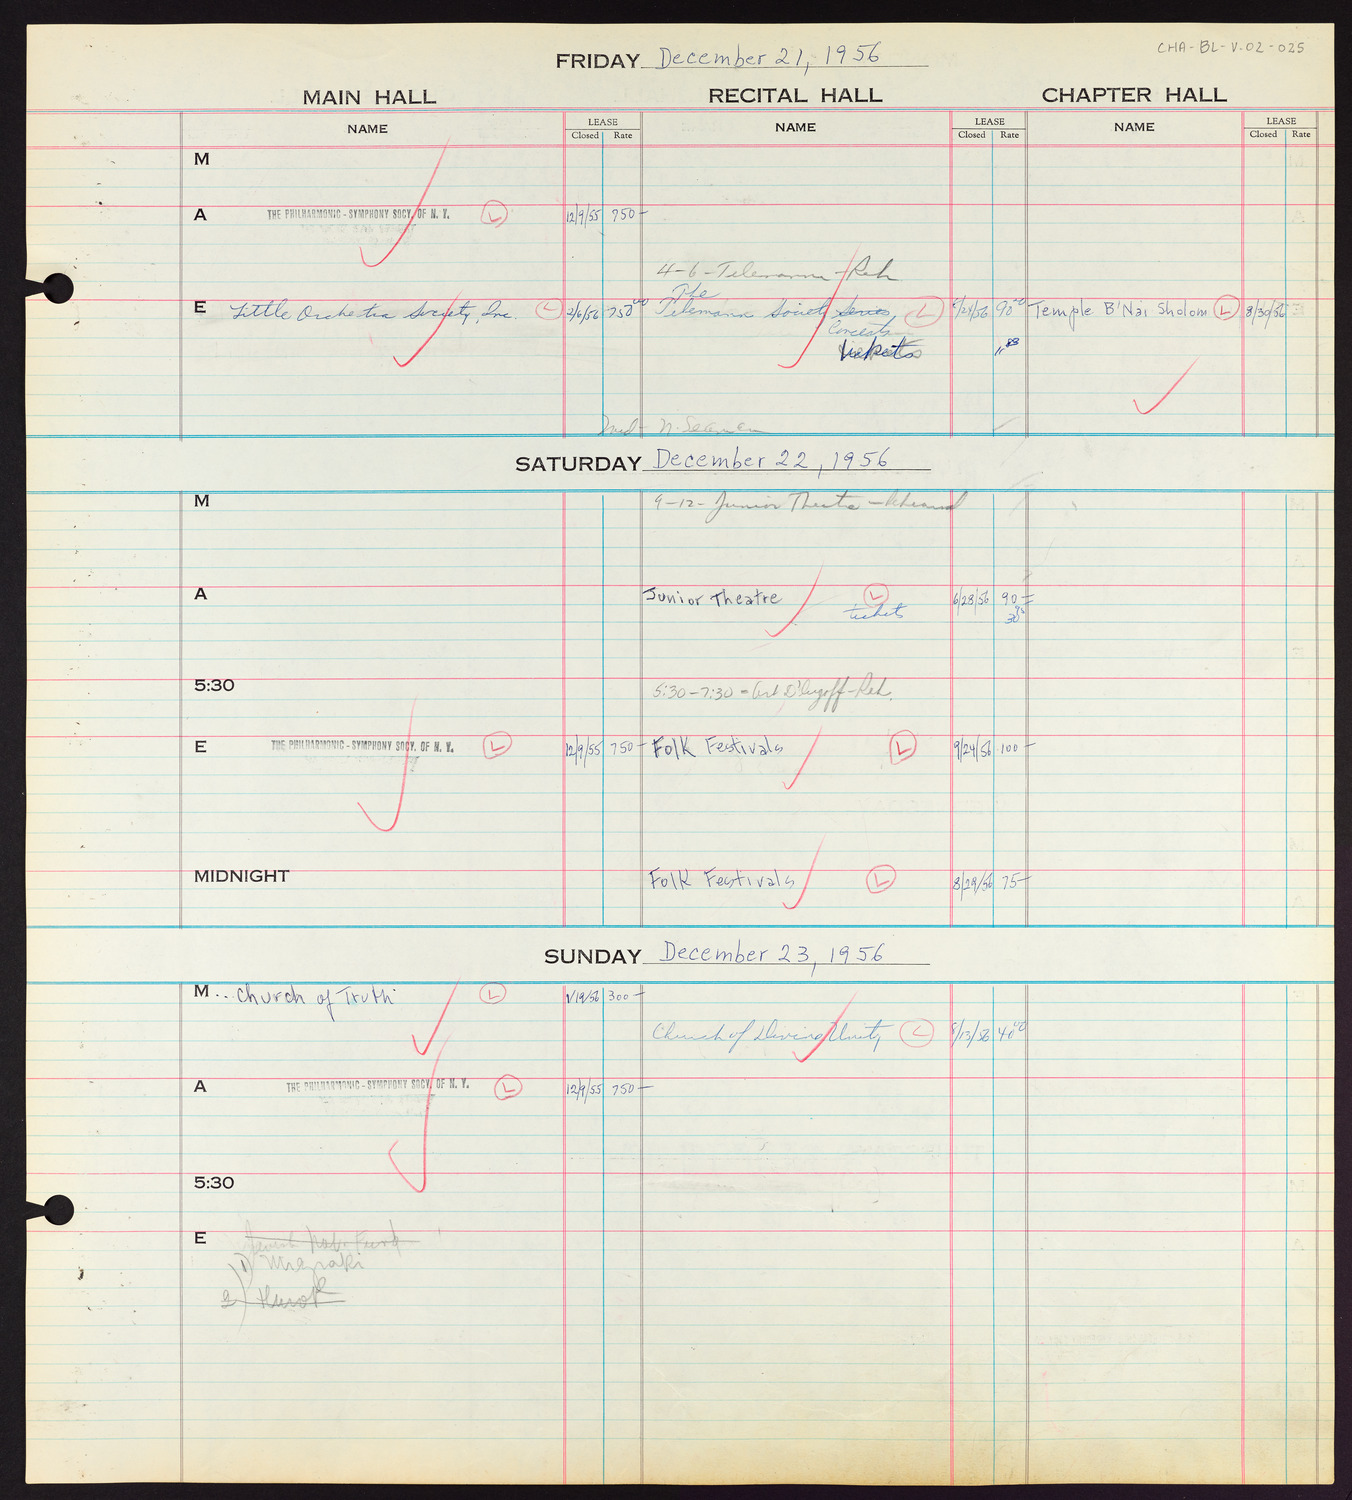 CHA-BL-V.02-025
FRIDAY December 21, 1956
MAIN HALL RECITAL HALL CHAPTER HALL
NAME LEASE Closed Rate NAME LEASE Closed Rate NAME LEASE Closed Rate
M
A THE PHILHARMONIC-SYMPHONY SOCY. OF N. Y. L 12/9/55 750-
4-6-Telemann-Reh
The
E Little Orchestra Society, Inc. L 2/6/56 750⁰⁰ Telemann Society Series L /56 90⁰⁰ Temple B'Nai Sholom L 8/30/56
Concerts
tickets
N. Seaman
SATURDAY December 22, 1956
M 9-12-Junior Theatre-Rehearsal
A Junior Theatre L 6/28/56 90-
tickets 30
5:30 5:30-7:30-Art D'Lugoff-Reh.
E THE PHILHARMONIC-SYMPHONY SOCY. OF N. Y. L 12/9/55 750- Folk Festivals L 9/24/56 100-
MIDNIGHT Folk Festivals L 8/29/56 75-
SUNDAY December 23, 1956
M.. Church of Truth L 1/19/56 300-
Church of Divine Unity L /13/56 40⁰⁰
A THE PHILHARMONIC-SYMPHONY SOCY. OF N. Y. L 12/9/55 750-
5:30
E Jewish Nat. Fund
1) Mizraki
2) Hurok